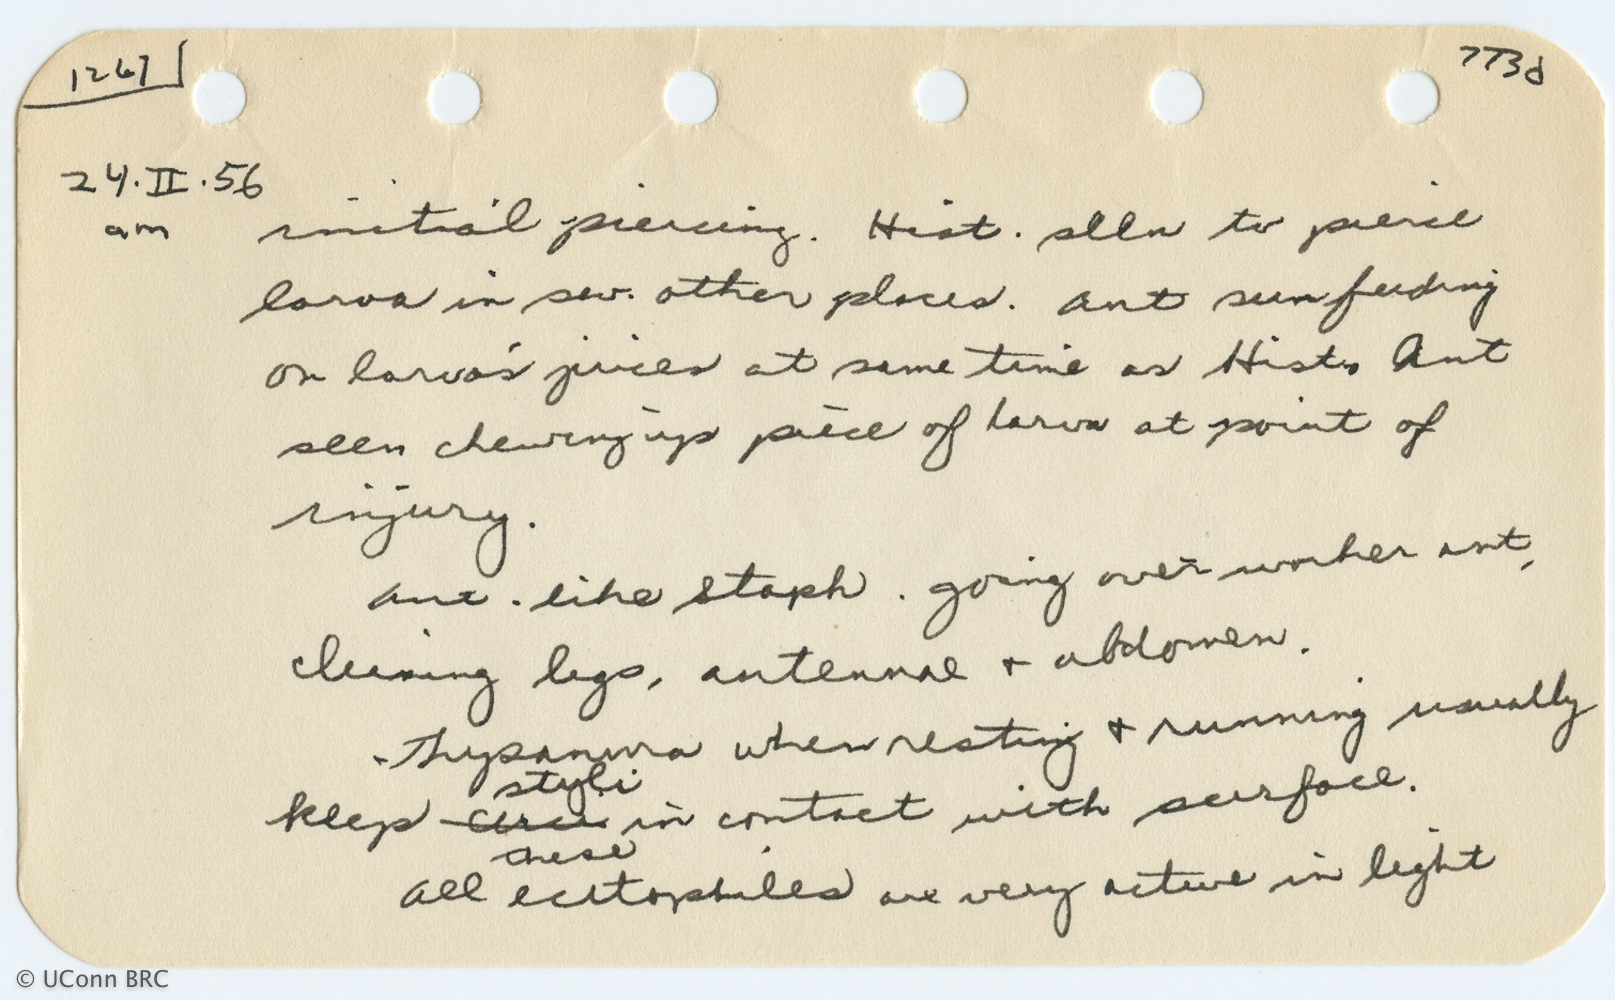 1267
773d
24.II.56
am
initial piercing. Hist. seen to pierce
larva in sev. other places. Ant seen feeding
on larva's juices at same time as Hist. Ant
seen chewing up piece of larva at point of
injury.
Ant-like Staph. going over worker ant,
cleaning legs, antennae + abdomen.
- Thysanura when resting + running usually
styli
keep cerci in contact with surface.
these
All ectophiles are very active in light
© UConn BRC